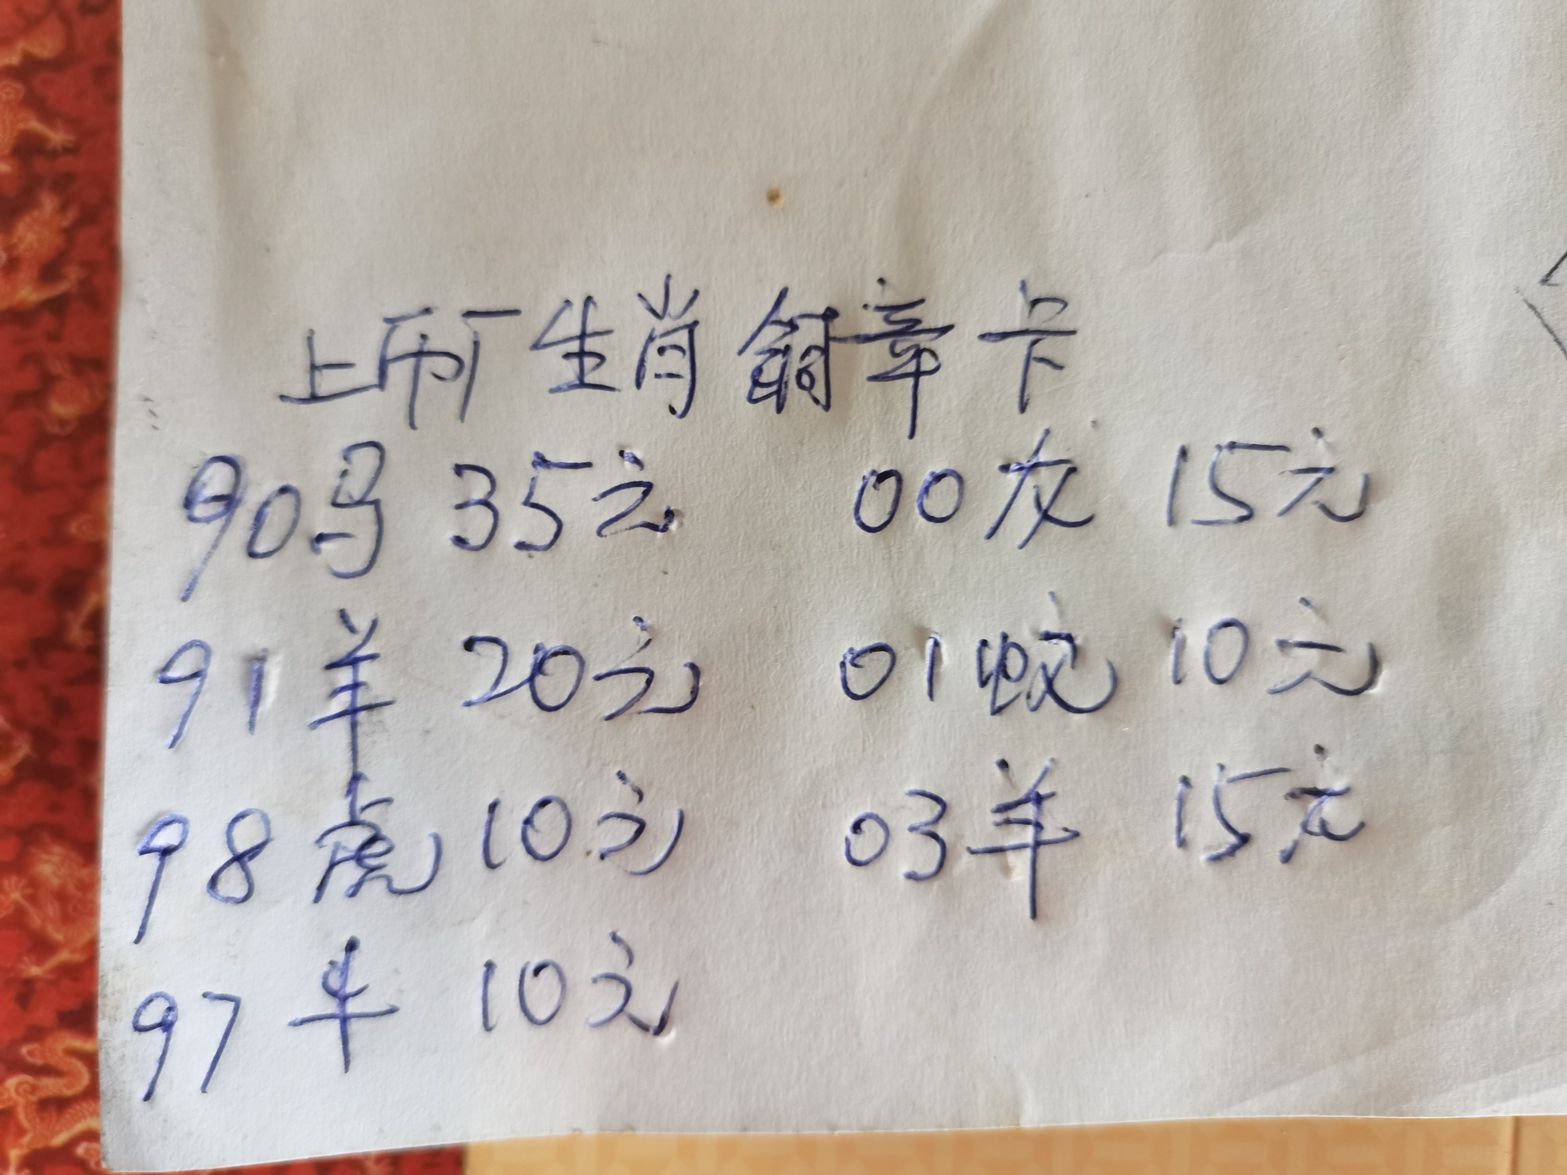 上币厂生肖铜章卡
90马 35元 00龙 15元
91羊 20元 01蛇 10元
98虎 10元 03羊 15元
97牛 10元